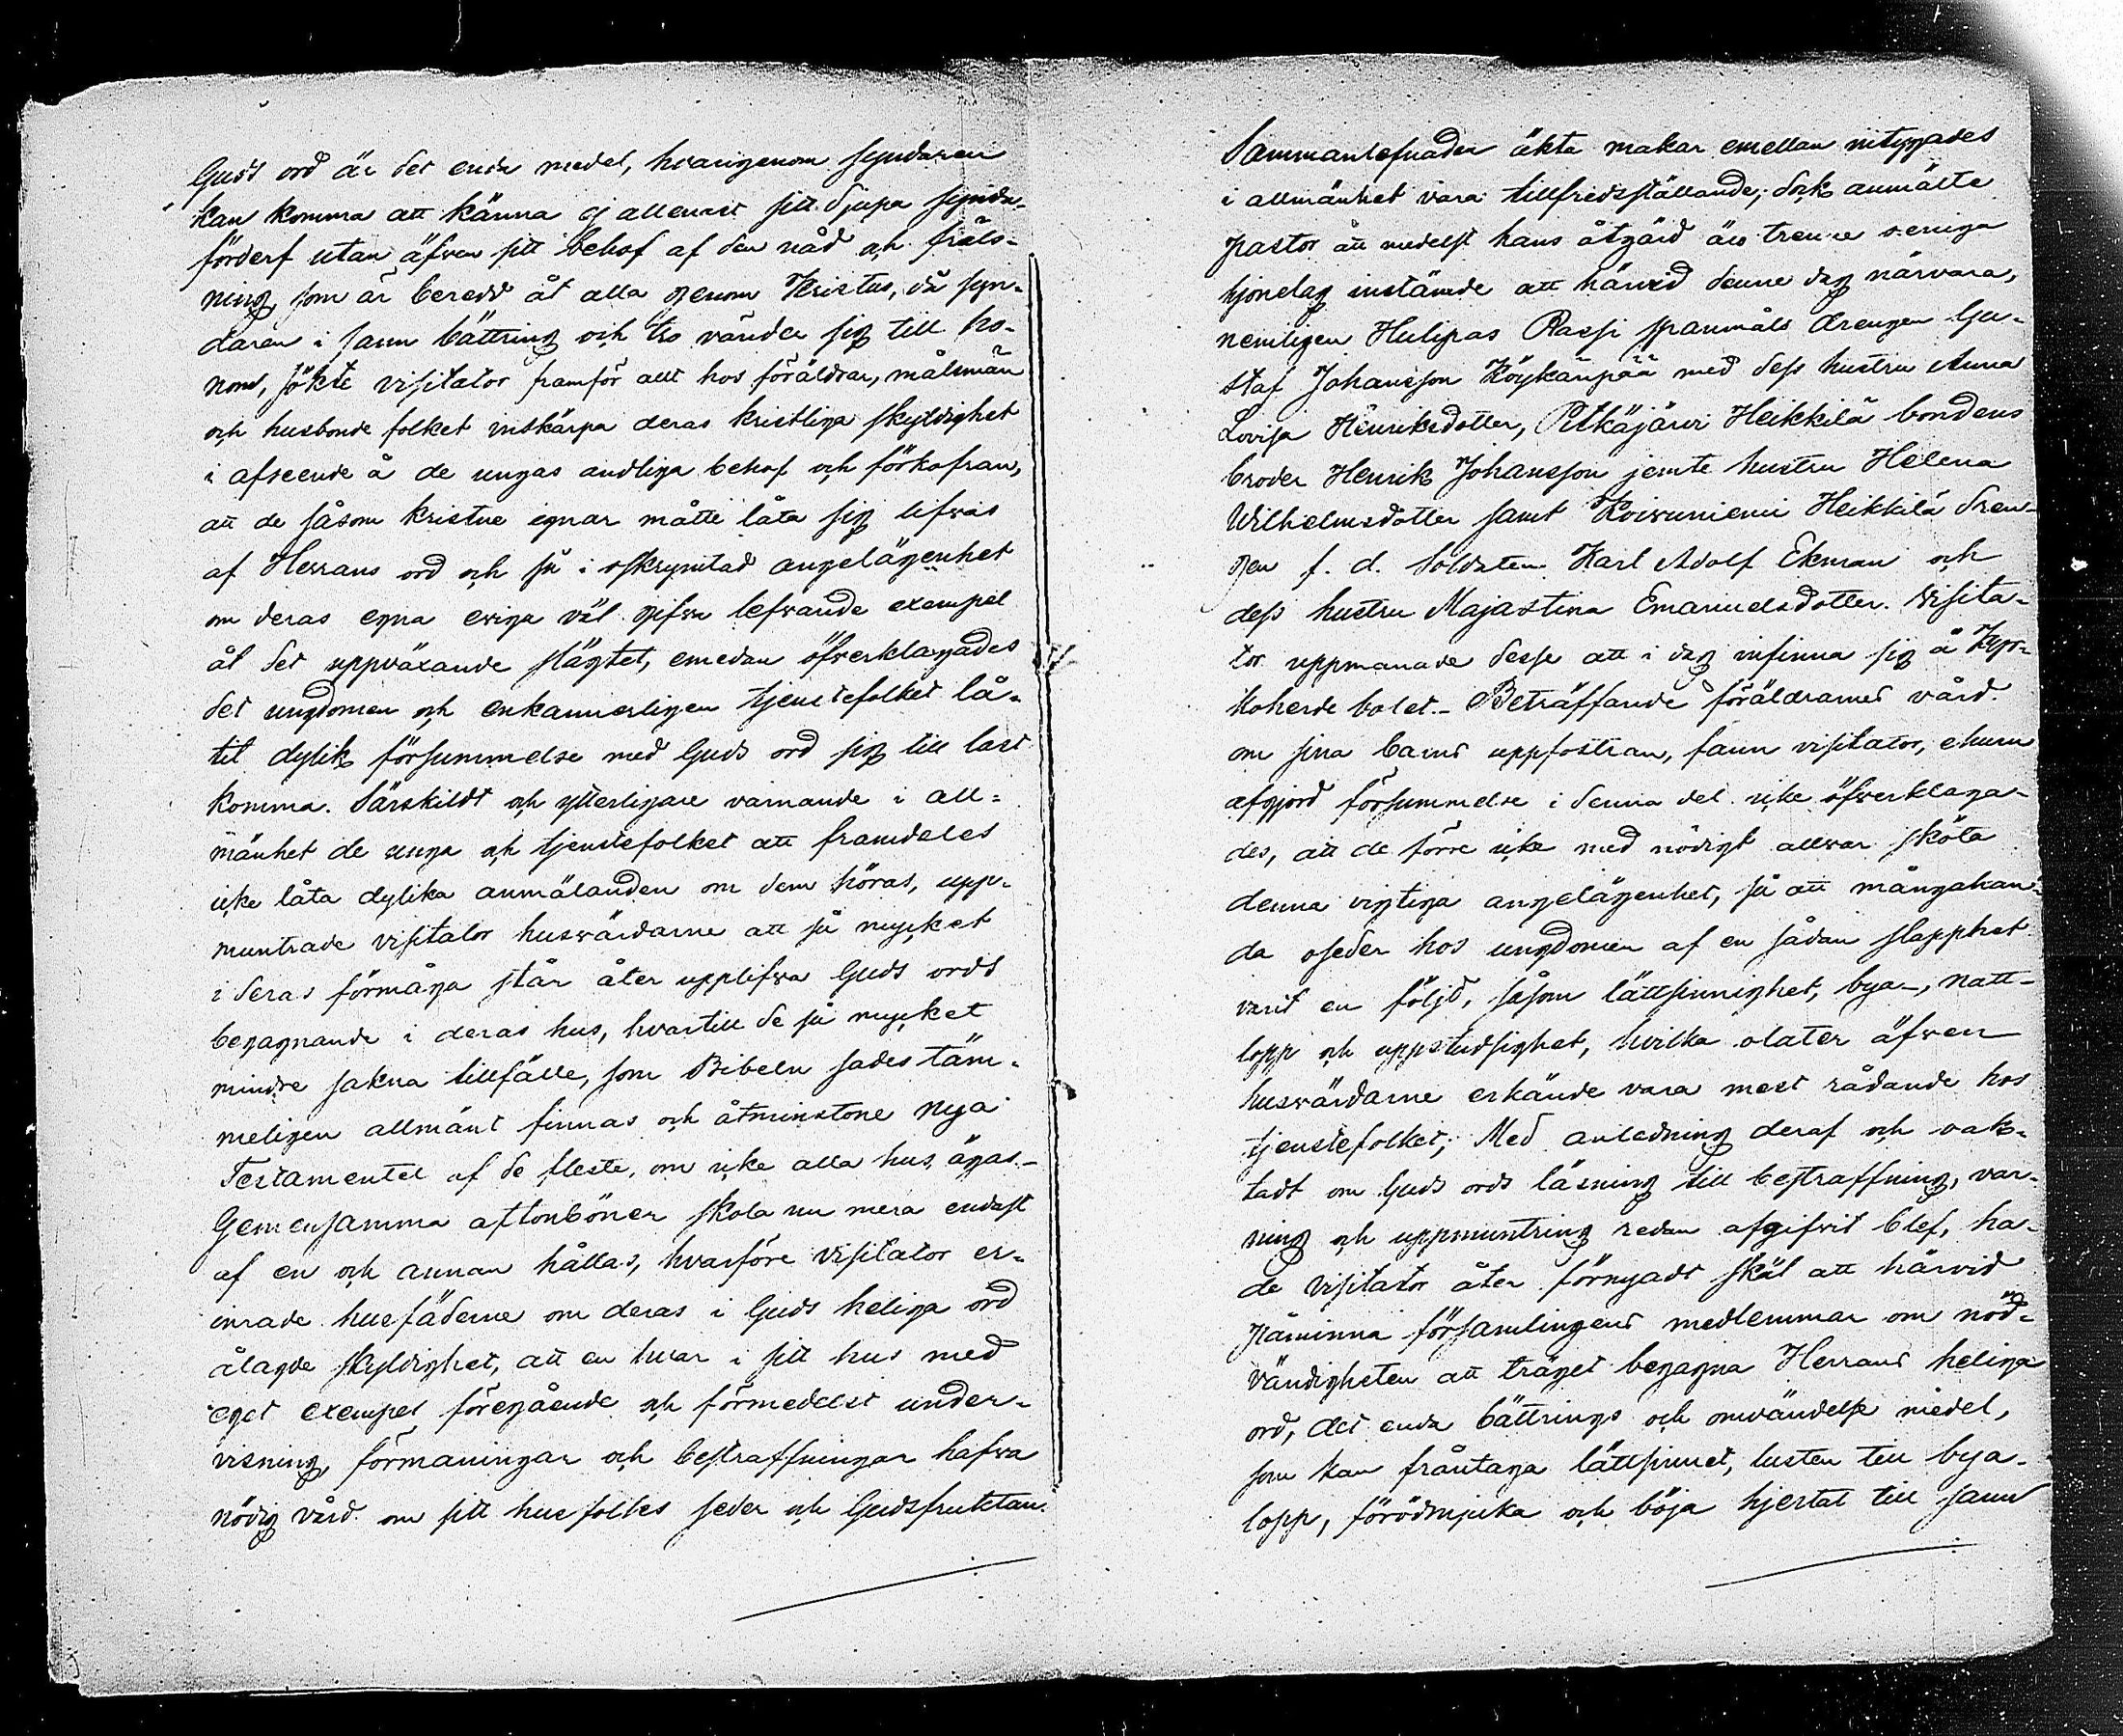 Guds ord är det enda medel, hvarigenom syndaren
kan komma att känna ej allenast sitt djupa synda-
förderf utan äfven sitt behof af den nåd och fräls-
ning, som är beredd åt alla genom Kristus, då syn-
daren i sann bättring och tro vänder sig till ho-
nom, sökte visitator framför allt hos föräldrar, målsmän
och husbonde folket inskärpa deras kristliga skyldighet
i afseende å de ungas andliga behof och förkofran,
att de såsom kristne egnar måtte låta sig lifvas
af Herrans ord och så i oskrymtad angelägenhet
om deras egna eviga väl gifva lefvande exempel
åt det uppväxande slägtet, emedan öfverklagades
det ungdomen och enkannerligen tjenstefolket lå-
tit dylik försummelse med Guds ord sig till last
komma. Särskildt och ytterligare varnande i all-
mänhet de unga och tjenstefolket att framdeles
icke låta dylika anmälanden om dem höras, upp-
muntrade visitator husvärdarne att så mycket
i deras förmåga står åter upplifva Guds ords
begagnande i deras hus, hvartill de så mycket
mindre sakna tillfälle, som Bibeln sades täm-
meligen allmänt finnas och åtminstone Nya
Testamentet af de fleste, om icke alla hus, ägas.-
Gemensamma aftonböner skola nu mera endast
af en och annan hållas, hvarföre visitator er-
inrade husfäderne om deras i Guds heliga ord
ålagde skyldighet, att en hvar i sitt hus med
eget exempel föregående och förmedelst under-
visning, förmaningar och bestraffningar hafva
nödig vård om sitt husfolks seder och Gudsfruktan.
Sammanlefnaden äkta makar emellan vitsgades
i allmänhet vara tillfredsställande; dock anmälte
pastor att medelst hans åtgärd äro trenne oeniga
hjonelag instämde att härvid denne dag närvara,
nemligen Hulipas Rassi spanmåls drengen Gu-
staf Johansson Köykänpää med dess hustru Anna
Lovisa Henriksdotter, Pitkäjärvi Heikkilä bondens
broder Henrik Johansson jemte hustru Helena
Wilhelmsdotter samt Koivuniemi Heikkilä dren-
gen f. d. Soldaten Karl Adolf Ekman och
dess hustru Majastina Emanuelsdotter. Visita-
tor uppmanade desse att i dag infinna sig å Kyr-
koherde bolet.- Beträffande föräldrarnes vård
om sina barns uppfostran, fann visitator, ehuru
afgjord försummelse i denna del icke öfverklaga-
des, att de förre icke med nödigt allvar sköta
denna vigtiga angelägenhet, så att mångahan-
da oseder hos ungdomen af en sådan slapphet
varit en följd, såsom lättsinnighet, bya-, natt-
lopp och uppstudsighet, hvilka olater äfven
husvärdarne erkände vara mest rådande hos
tjenstefolket; Med anledning deraf och oak-
tadt om Guds ords läsning till bestraffning, var-
ning och uppmuntring redan afgifvit blef, ha-
de visitator åter förnyadt skäl att härvid
påminna församlingens medlemmar om nöd-
vändigheten att träget begagna Herrans heliga
ord, det enda bättrings och omvändelse medel,
som kan fråntaga lättsinnet, lusten till bya-
lopp, förödmjuka och böja hjertat till sann